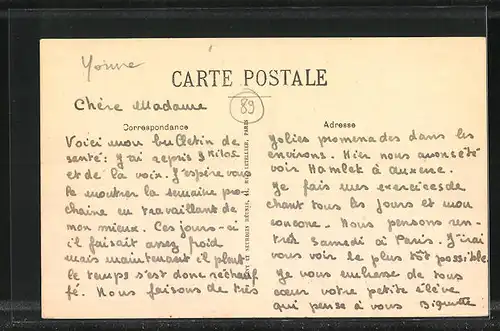 Yonne
CARTE POSTALE
89
Chère Madame
Correspondance
Voici mon bulletin de
santé: J'ai repris 3 Kilos
et de la voix. J'espère vous
le montrer la semaine pro-
chaine en travaillant de
mon mieux. Ces jours-ci
il faisait assez froid
mais maintenant il pleut
le temps s'est donc réchauf
fé. Nous faisons de très
Adresse
jolies promenades dans les
environs. Hier nous avons été
voir Hamlet à Auxerre.
Je fais mes exercices de
chant tous les jours et mon
concone. Nous pensons ren-
trer Samedi à Paris. J'irai
vous voir le plus tôt possible.
Je vous embrasse de tout
cœur votre petite élève
qui pense à vous